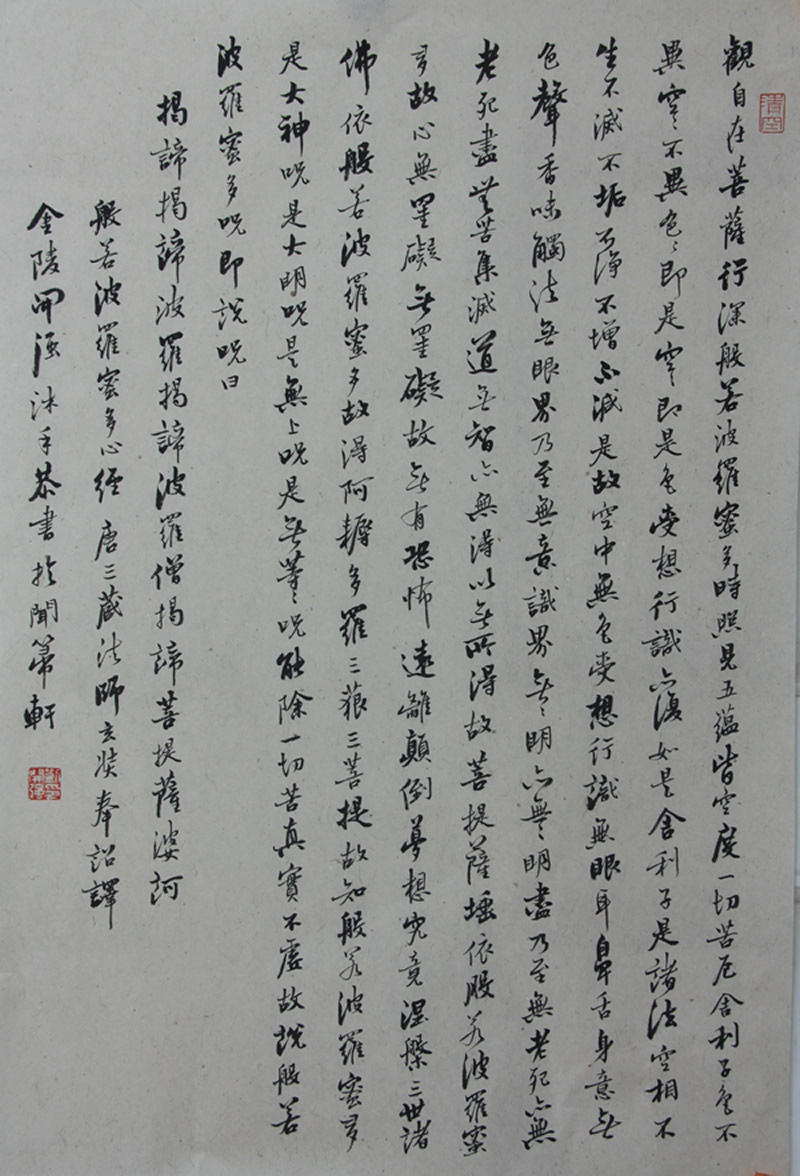 觀自在菩薩行深般若波羅蜜多時照見五蘊皆空度一切苦厄舍利子色不
異空空不異色色即是空空即是色受想行識亦復如是舍利子是諸法空相不
生不滅不垢不淨不增不減是故空中無色受想行識無眼耳鼻舌身意無
色聲香味觸法無眼界乃至無意識界無無明亦無無明盡乃至無老死亦無
老死盡無苦集滅道無智亦無得以無所得故菩提薩埵依般若波羅蜜
多故心無罣礙無罣礙故無有恐怖遠離顛倒夢想究竟涅槃三世諸
佛依般若波羅蜜多故得阿耨多羅三藐三菩提故知般若波羅蜜多
是大神咒是大明咒是無上咒是無等等咒能除一切苦真實不虛故說般若
波羅蜜多咒即說咒曰
揭諦揭諦波羅揭諦波羅僧揭諦菩提薩婆訶
般若波羅蜜多心經 唐三藏法師玄奘奉詔譯
金陵開強沐手恭書於聞箒軒
清空